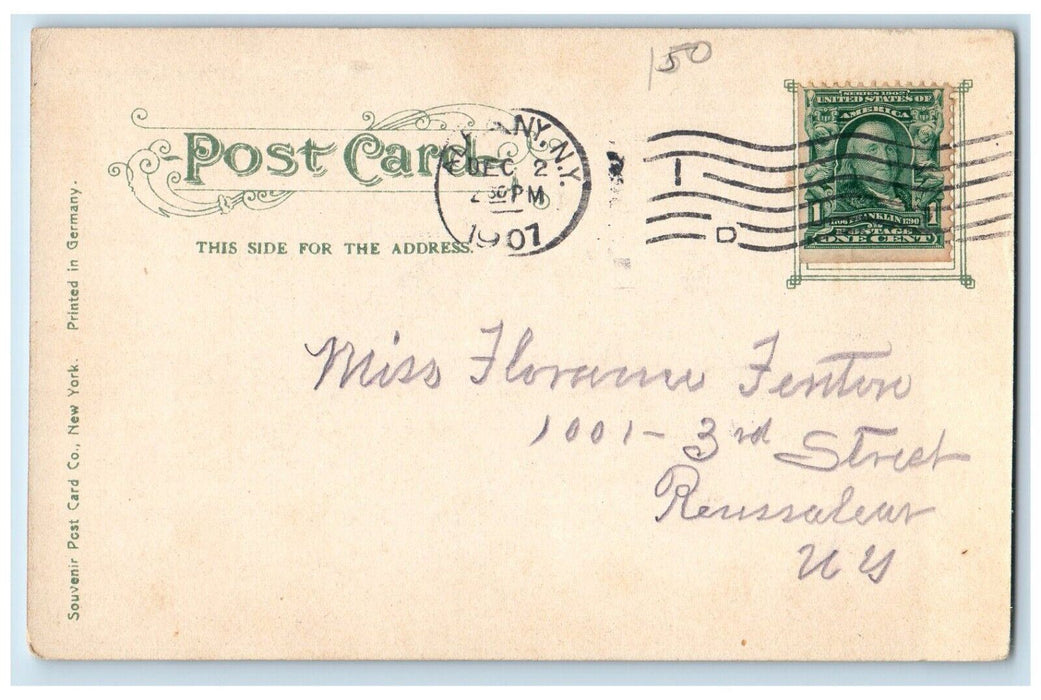 150
SERIES 1902
UNITED STATES OF
AMERICA
Post Card
NY, N.Y.
DEC 2
2 30 PM
1907
1
D
1706 FRANKLIN 1790
1 POSTAGE 1
ONE CENT
THIS SIDE FOR THE ADDRESS.
Souvenir Post Card Co., New York. Printed in Germany.
Miss Fenton
1001 - 3rd Street
Renssalear
N Y